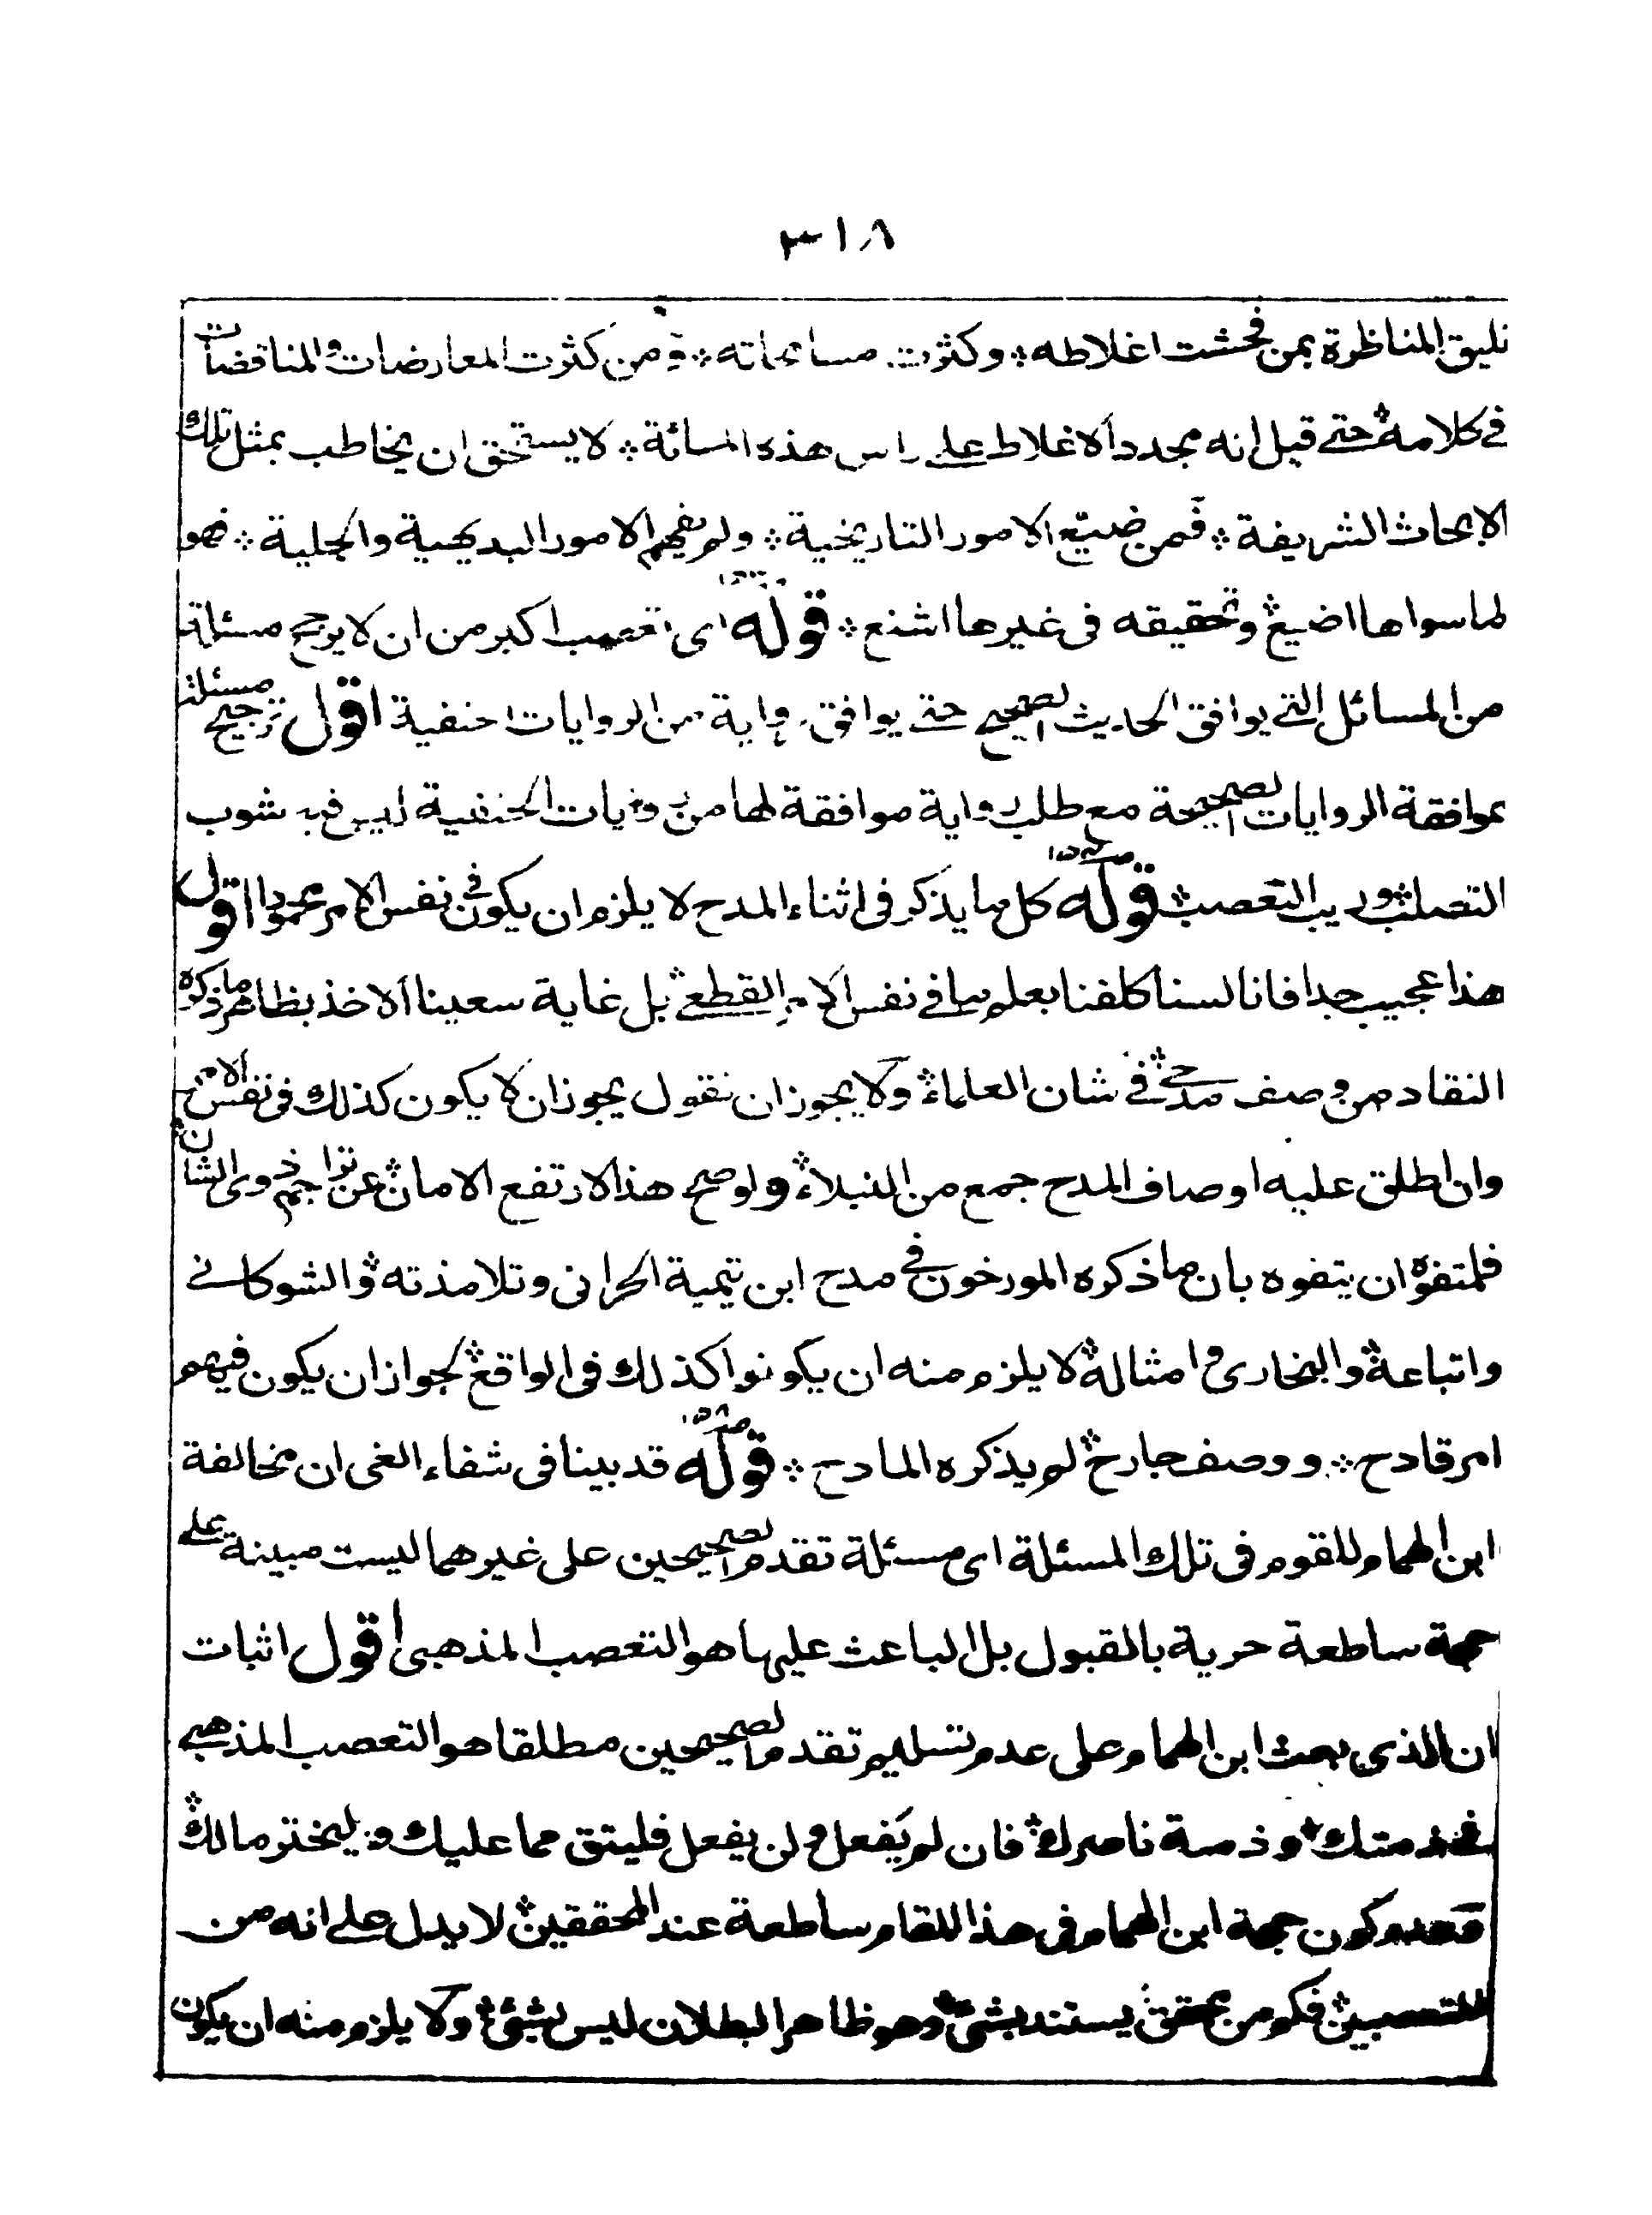 ٣١٨
تليق المناظرة بمن فحشت اغلاطه ۞ وكثرت مسامحاته ۞ ومن كثرت المعارضات والمناقضات
فى كلامه ۞ حتى قيل انه مجدد الاغلاط على راس هذه المائة ۞ لا يستحق ان يخاطب بمثل تلك
الابحاث الشريفة ۞ فمن ضيع الامور التاريخية ۞ ولم يفهم الامور البديهية والجلية ۞ فهو
لما سواها اضيع ۞ وتحقيقه فى غيرها اشنع ۞ قوله اى تعصب اكبر من ان لا يرجح مسئلة
من المسائل التى يوافق الحديث الصحيح حتى يوافق رواية من الروايات الحنفية اقول ترجيح مسئلة
بموافقة الروايات الصحيحة مع طلب رواية موافقة لها من روايات الحنفية ليس فيه شوب
التصلب ۞ وريب التعصب ۞ قوله كل ما يذكر فى اثناء المدح لا يلزم ان يكون فى نفس الامر محمودا اقول
هذا عجيب جدا فانا لسنا كلفنا بعلم ما فى نفس الامر القطعى ۞ بل غاية سعينا الاخذ بظاهر ما ذكره
النقاد من وصف مدحى ۞ فى شان العلماء ۞ ولا يجوز ان نقول يجوز ان لا يكون كذلك فى نفس الامر
وان اطلق عليه اوصاف المدح جمع من النبلاء ۞ ولو صح هذا لارتفع الامان ۞ عن تراجم ذوى الشان ۞
فلمتفوه ان يتفوه بان ما ذكره المورخون فى مدح ابن تيمية الحرانى وتلامذته ۞ والشوكانى
واتباعه ۞ والبخارى وامثاله ۞ لا يلزم منه ان يكونوا كذلك فى الواقع ۞ لجواز ان يكون فيهم
امر قادح ۞ ووصف جارح ۞ لم يذكره المادح ۞ قوله قد بينا فى شفاء الغى ان مخالفة
ابن الهمام للقوم فى تلك المسئلة اى مسئلة تقدم الصحيحين على غيرهما ليست مبينة على
حجة ساطعة حرية بالقبول بل الباعث عليها هو التعصب المذهبى اقول اثبات
ان الذى بعث ابن الهمام على عدم تسليم تقدم الصحيحين مطلقا هو التعصب المذهبى
فى ذمتك ۞ وذمة ناصرك ۞ فان لم يفعل ولن يفعل فليتق مما عليك وليختر مالك ۞
وعدم كون حجة ابن الهمام فى هذا المقام ساطعة عند المحققين ۞ لا يدل على انه من
المتعصبين ۞ فكم من محقق ۞ يستند بشئ ۞ وهو ظاهر البطلان ليس بشئ ۞ ولا يلزم منه ان يكون